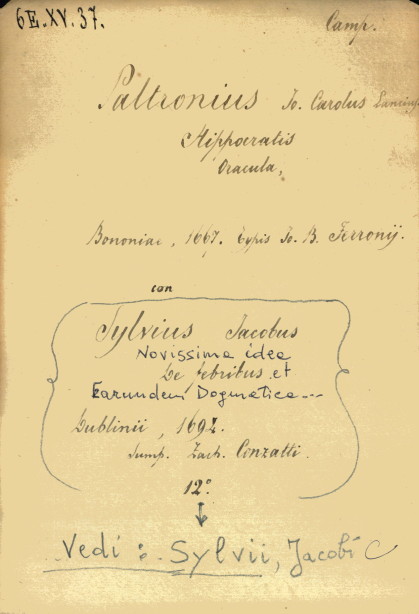 6E.XV.37.
Camp.
Paltronius Jo. Carolus
Hippocratis
Oracula,
Bononiae, 1667. typis Jo. B. Ferronij.
con
Sylvius Jacobus
Novissima idea
De febribus et
Earundem Dogmatica...
Dublinii, 1692.
Sump. Zach. Conzatti.
12º
Vedi: Sylvii, Jacobi